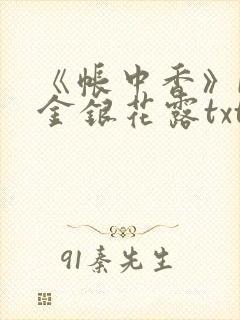 《帐中香》
金银花露txt
91秦先生